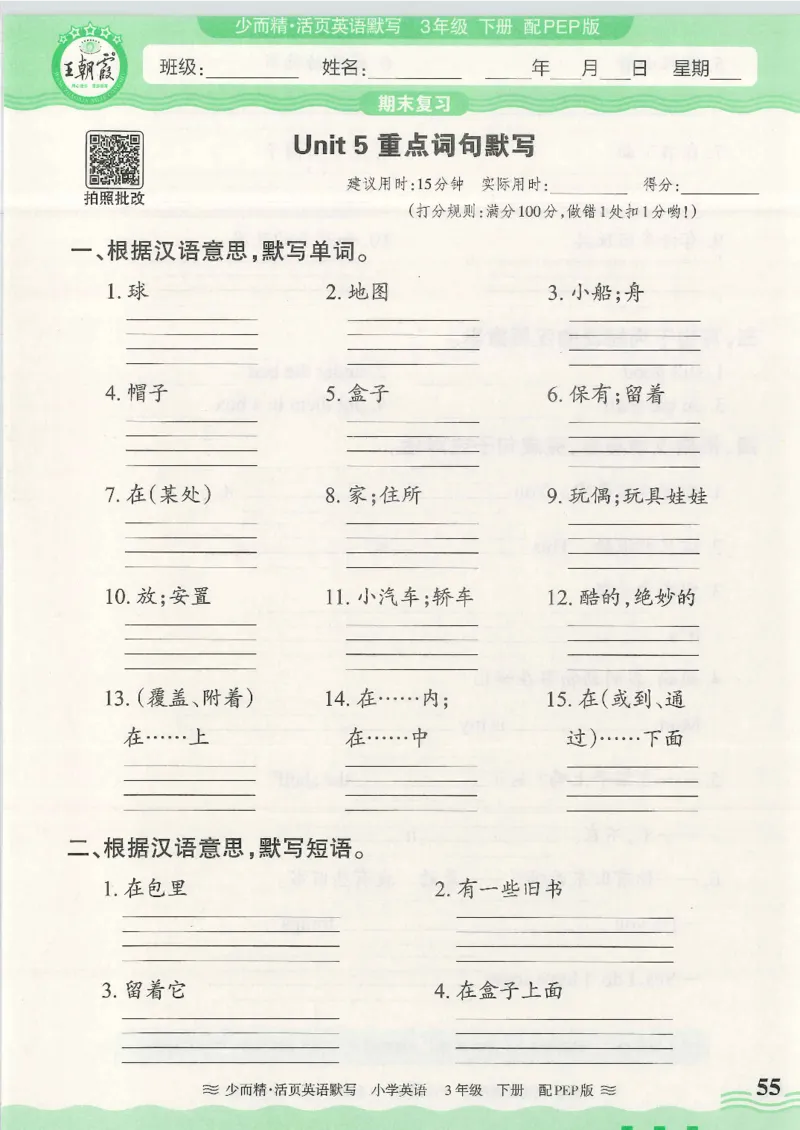 少而精·活页英语默写 3年级 下册 配PEP版
王朝霞
班级: 姓名: 年 月 日 星期
期末复习
Unit 5 重点词句默写
拍照批改
建议用时:15分钟 实际用时: 得分:
(打分规则:满分100分,做错1处扣1分哟!)
一、根据汉语意思,默写单词。
1. 球 2. 地图 3. 小船;舟
4. 帽子 5. 盒子 6. 保有;留着
7. 在(某处) 8. 家;住所 9. 玩偶;玩具娃娃
10. 放;安置 11. 小汽车;轿车 12. 酷的,绝妙的
13. (覆盖、附着) 14. 在……内; 15. 在(或到、通
在……上 在……中 过)……下面
二、根据汉语意思,默写短语。
1. 在包里 2. 有一些旧书
3. 留着它 4. 在盒子上面
少而精·活页英语默写 小学英语 3年级 下册 配PEP版
55